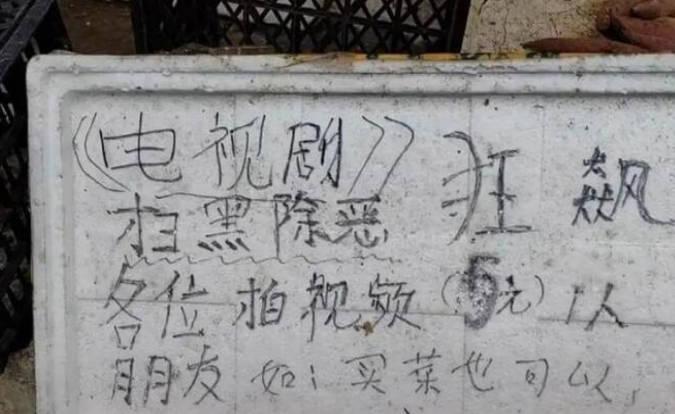 《电视剧》 狂飙
扫黑除恶
各位拍视频(5元)1人
朋友如:买菜也可以,